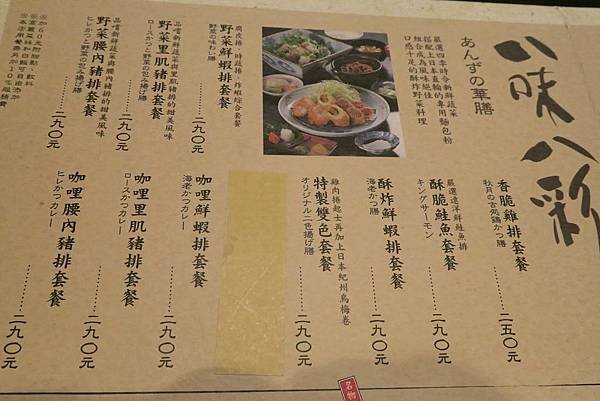 八味八彩
あんずの華膳
嚴選四季時令新鮮蔬菜
搭配上日本三輪的專用麵包粉
組合成為風味絕佳
口感十足的酥炸野菜料理
腐皮捲、時蔬捲、炸蝦綜合套餐
野菜鮮蝦排套餐
野菜の味わい膳
二九〇元
品嚐新鮮蔬菜與里肌豬排的甜美風味
野菜里肌豬排套餐
ロースかつと野菜の包み揚げ膳
二九〇元
品嚐新鮮蔬菜與腰內豬排的甜美風味
野菜腰內豬排套餐
ヒレかつと野菜の包み揚げ膳
二九〇元
※加60元附甜點、飲料
※高麗菜絲和白飯可自由添加
※本店用餐需另加10%服務費
香脆雞排套餐
秋月の古処鶏かつ膳
二五〇元
嚴選遠洋鮮鮭魚排
酥脆鮭魚套餐
キングサーモン
二九〇元
酥炸鮮蝦排套餐
海老かつ膳
二九〇元
雞肉捲起士再加上日本紀州烏梅卷
特製雙色套餐
オリジナル二色揚げ膳
二九〇元
咖哩鮮蝦排套餐
海老かつカレー
二九〇元
咖哩里肌豬排套餐
ロースかつカレー
二九〇元
咖哩腰內豬排套餐
ヒレかつカレー
二九〇元
名物